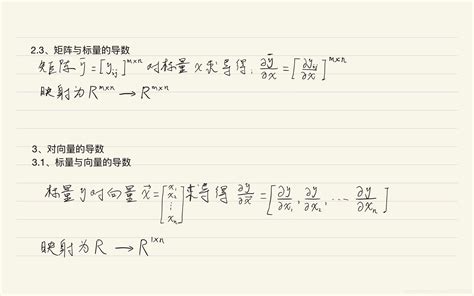 2.3、矩阵与标量的导数
矩阵 ȳ=[y_ij]^{m×n} 对标量 x 求导得: ∂ȳ/∂x = [∂y_ij/∂x]^{m×n}
映射为 R^{m×n} → R^{m×n}
3、对向量的导数
3.1、标量与向量的导数
标量 y 对向量 x⃗=[x₁ x₂ ⋮ xₙ] 求导得 ∂y/∂x⃗ = [∂y/∂x₁, ∂y/∂x₂, ⋯ ∂y/∂xₙ]
映射为 R → R^{1×n}